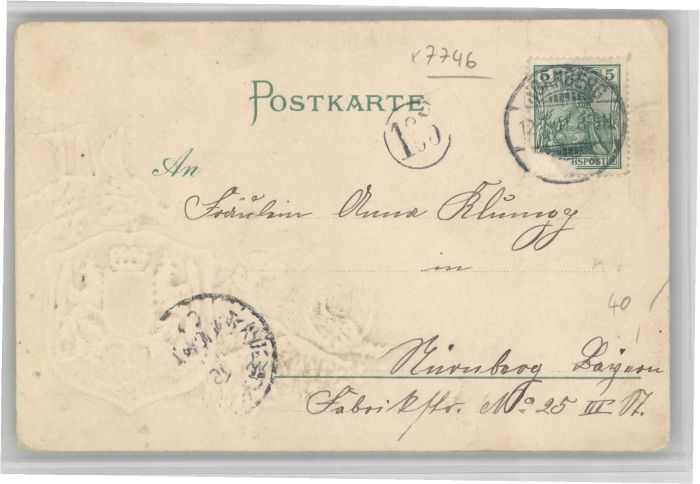 x7746
5 5
POSTKARTE
An
Fräulein Anna Klungg
in
40
REICHSPOST
Nürnberg Bayern
Fabrikstr. No 25 III St.